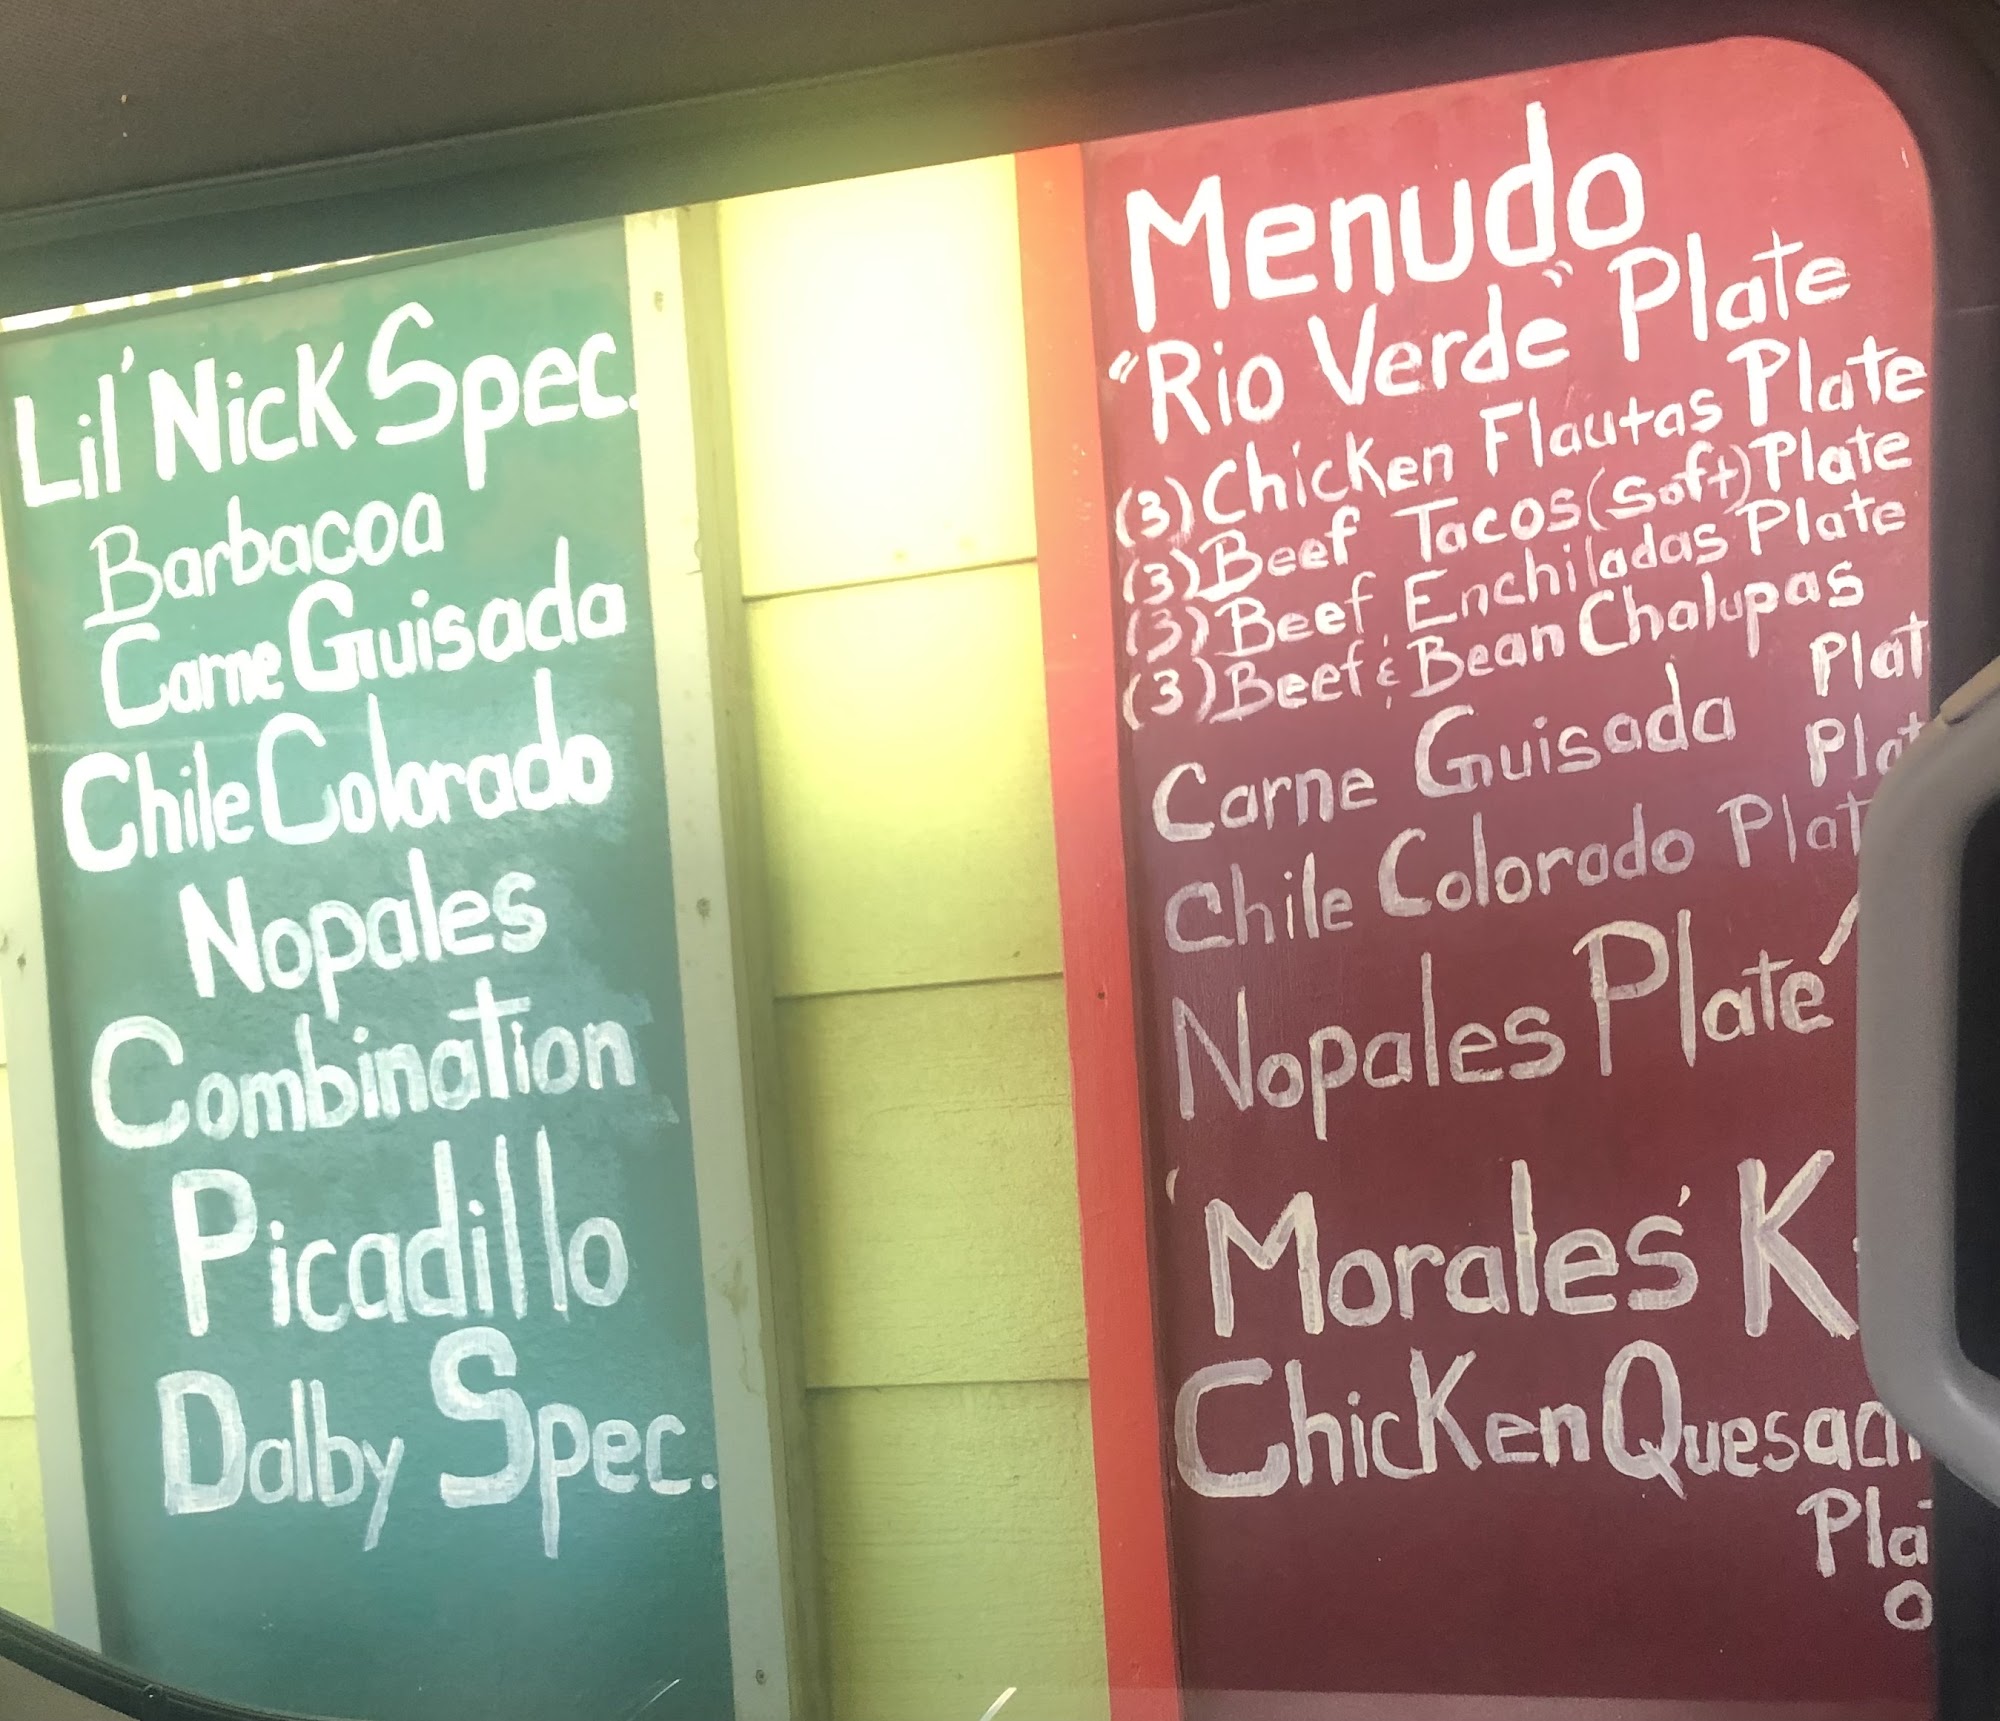 Lil' Nick Spec.
Barbacoa
Carne Guisada
Chile Colorado
Nopales
Combination
Picadillo
Dalby Spec.
Menudo
"Rio Verde" Plate
(3) Chicken Flautas Plate
(3) Beef Tacos (Soft) Plate
(3) Beef Enchiladas Plate
(3) Beef & Bean Chalupas
Plat
Carne Guisada Plat
Chile Colorado Plat
Nopales Plate
'Morales' K
Chicken Quesad
Pla